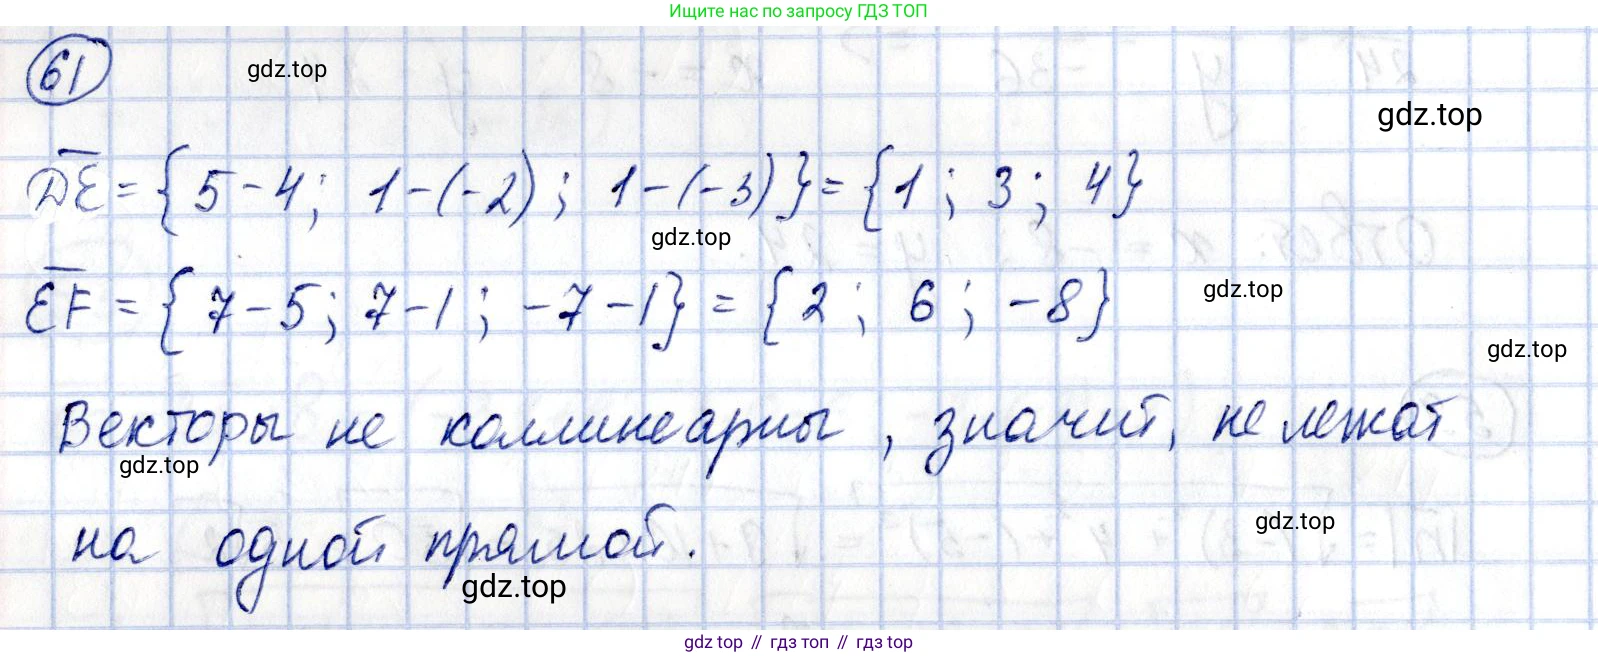 Ищите нас по запросу ГДЗ ТОП
61
gdz.top
gdz.top
DE = {5-4; 1-(-2); 1-(-3)} = {1; 3; 4}
gdz.top
EF = {7-5; 7-1; -7-1} = {2; 6; -8}
gdz.top
gdz.top
Векторы не коллинеарны, значит, не лежат
gdz.top
gdz.top
на одной прямой.
gdz.top
gdz top // гдз топ // гдз top